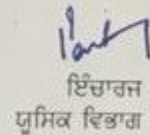 ਇੰਚਾਰਜ
ਯੂਸਿਕ ਵਿਭਾਗ